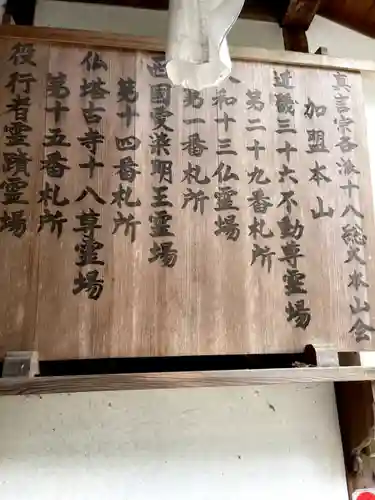 真言宗各派十八総大本山会
加盟本山
近畿三十六不動尊霊場
第二十九番札所
大和十三仏霊場
第一番札所
西國愛染明王霊場
第十四番札所
仏塔古寺十八尊霊場
第十五番札所
役行者霊蹟霊場